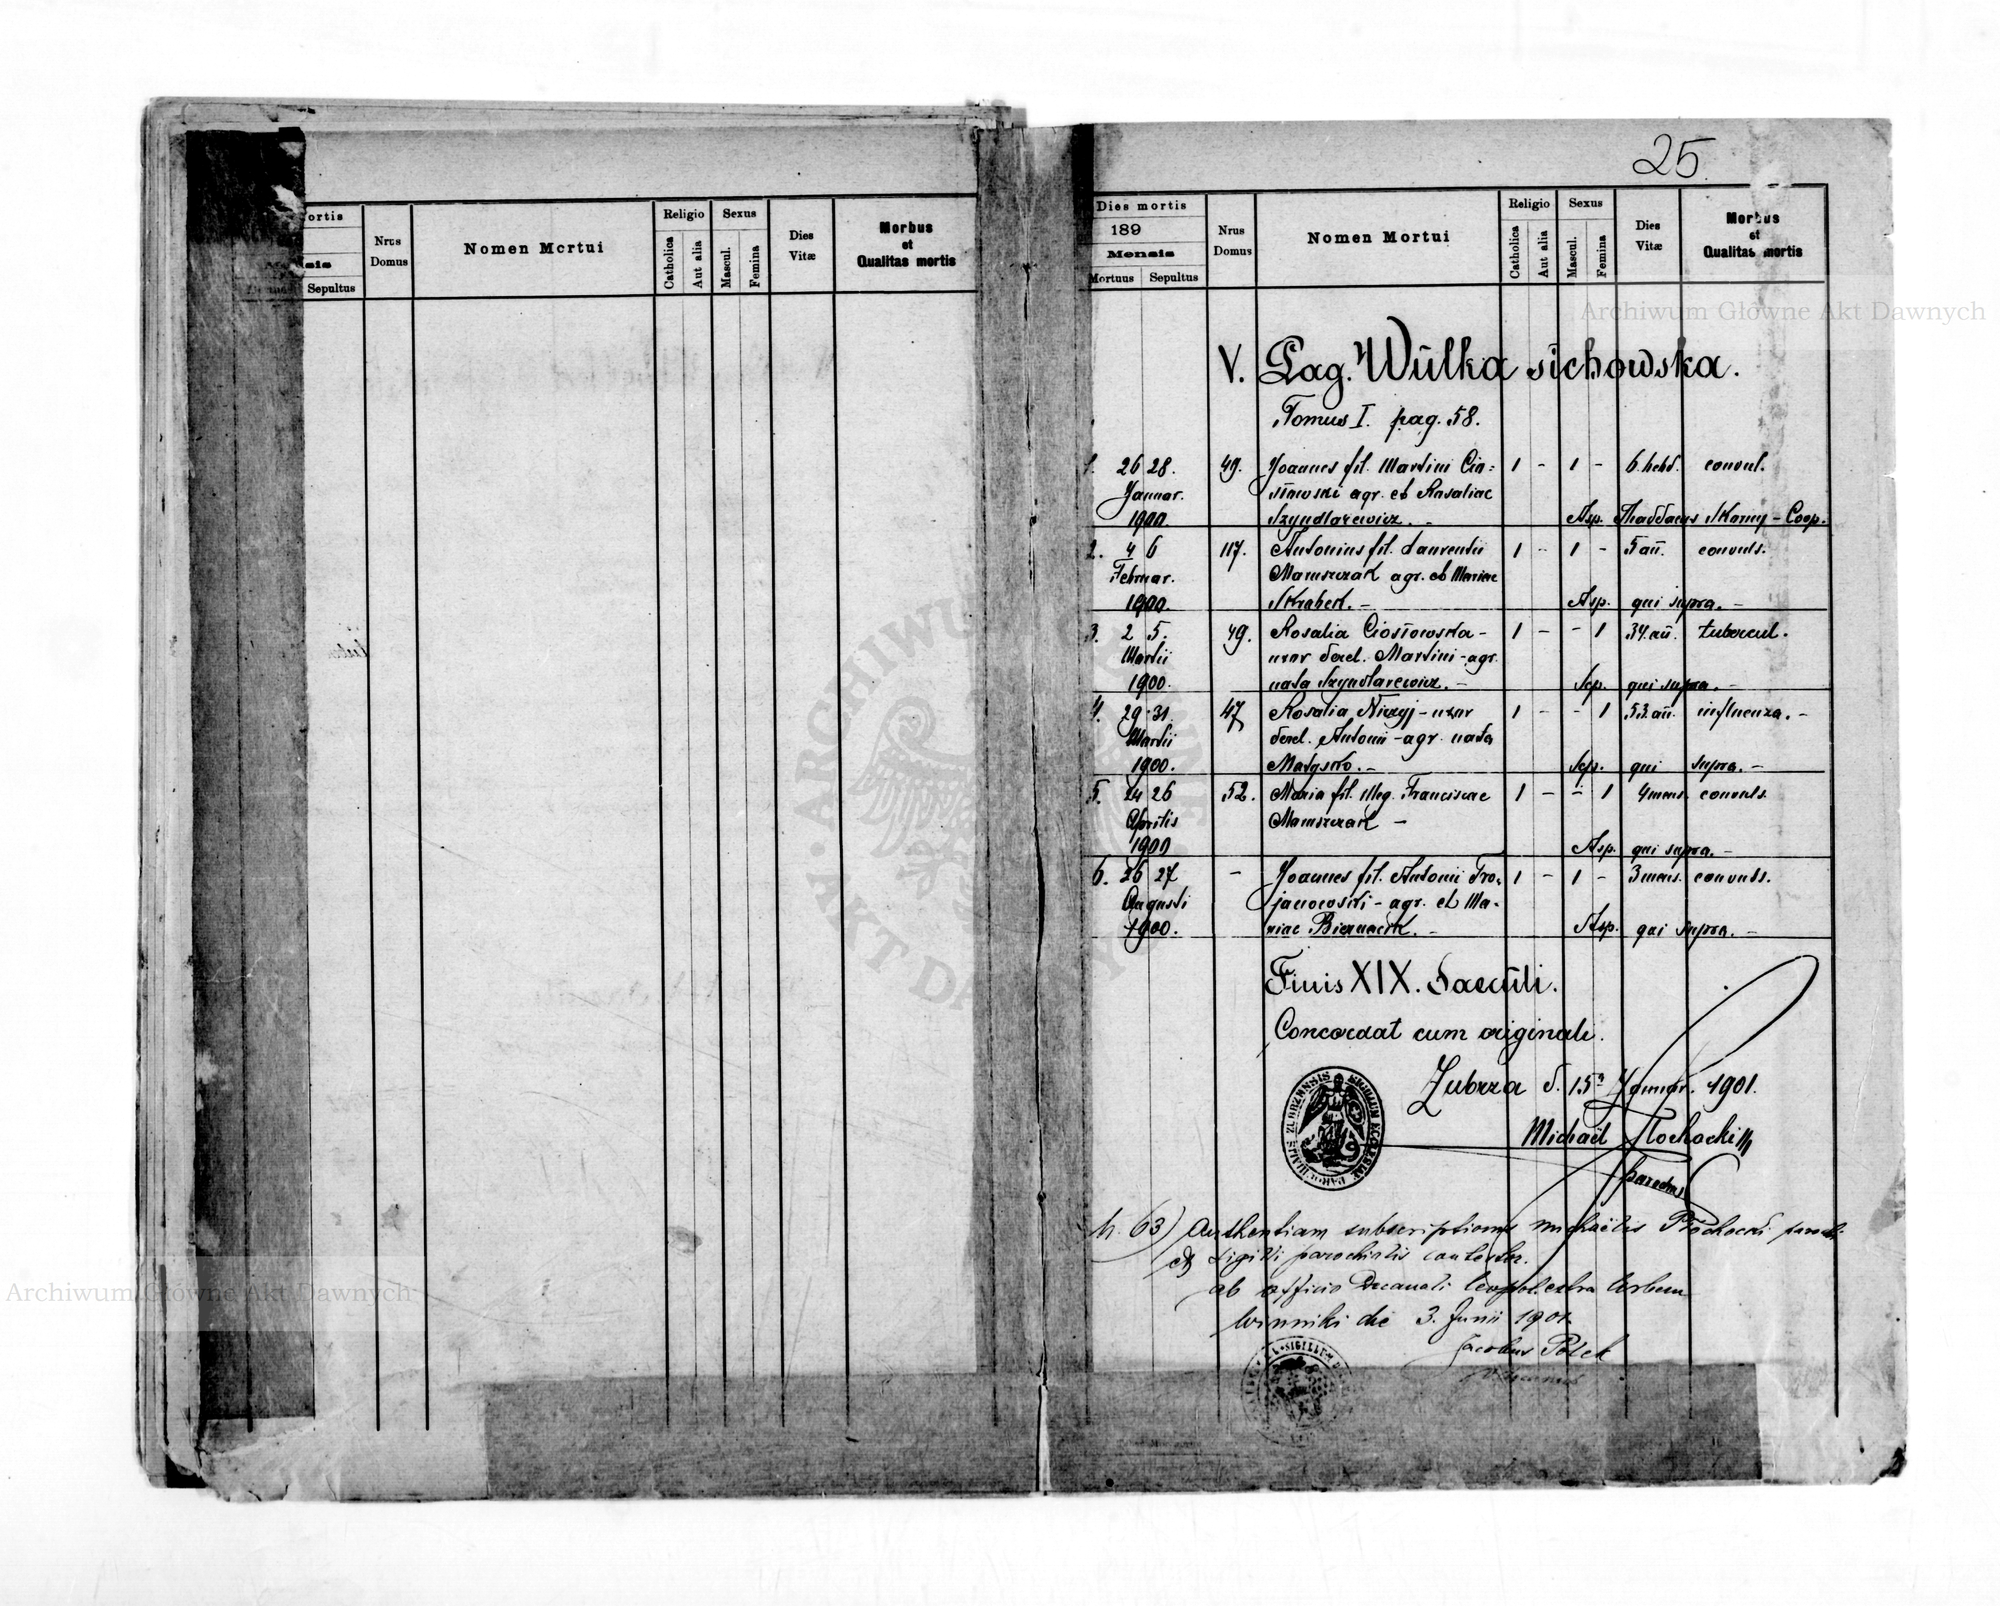 25
ortis
Sepultus
Nrus
Domus
Nomen Mortui
Religio
Catholica
Aut alia
Sexus
Mascul.
Femina
Dies
Vitæ
Morbus
et
Qualitas mortis
Dies mortis
189
Mensis
Mortuus
Sepultus
Nrus
Domus
Nomen Mortui
Religio
Catholica
Aut alia
Sexus
Mascul.
Femina
Dies
Vitæ
Morbus
et
Qualitas mortis
Archiwum Główne Akt Dawnych
V. Pag. Wulka sichowska.
Tomus I. pag. 58.
1. 26 28. 49. Joannes fil. Martini Cio= 1 - 1 - 6. hebd. convul.
Januar. słowski agr. et Rosaliae
1900. Szyndlarewicz. - Asp. Thaddaeus Skarny - Coop.
2. 4 6 117. Antonius fil. Laurentii 1 - 1 - 5 añ. convuls.
Februar. Maruszczak agr. et Mariae
1900. Skrabek. - Asp. qui supra. -
3. 2 5. 49. Rosalia Ciosłowska - 1 - - 1 34. añ. tubercul.
Martii uxor derel. Martini - agr.
1900. nata Szyndlarewicz. - Sep. qui supra. -
4. 29 - 31 47 Rosalia Niczyj - uxor 1 - - 1 53. añ. influenza. -
Martii derel. Antonii - agr. nata
1900. Małysko. - Sep. qui supra. -
5. 24 26 52. Maria fil. illeg. Franciscae 1 - - 1 4 mens. convuls.
Aprilis Maruszczak -
1900 Asp. qui supra. -
6. 26 27 - Joannes fil. Antonii Tro= 1 - 1 - 3 mens. convuls.
Augusti janowski - agr. et Ma-
1900. riae Biernacik. - Asp. qui supra. -
Finis XIX. Saeculi.
Concordat cum originali.
Zubrza d. 15ª Januar. 1901.
Michaël Płochocki
parochus
N. 63) Authentiam subscriptionis Michaëlis Płochocki parochi
et sigilli parochialis
ab officio Decanali Leopol. extra Urbem
Winniki die 3. Junii 1901.
Jacobus Półek
Archiwum Główne Akt Dawnych